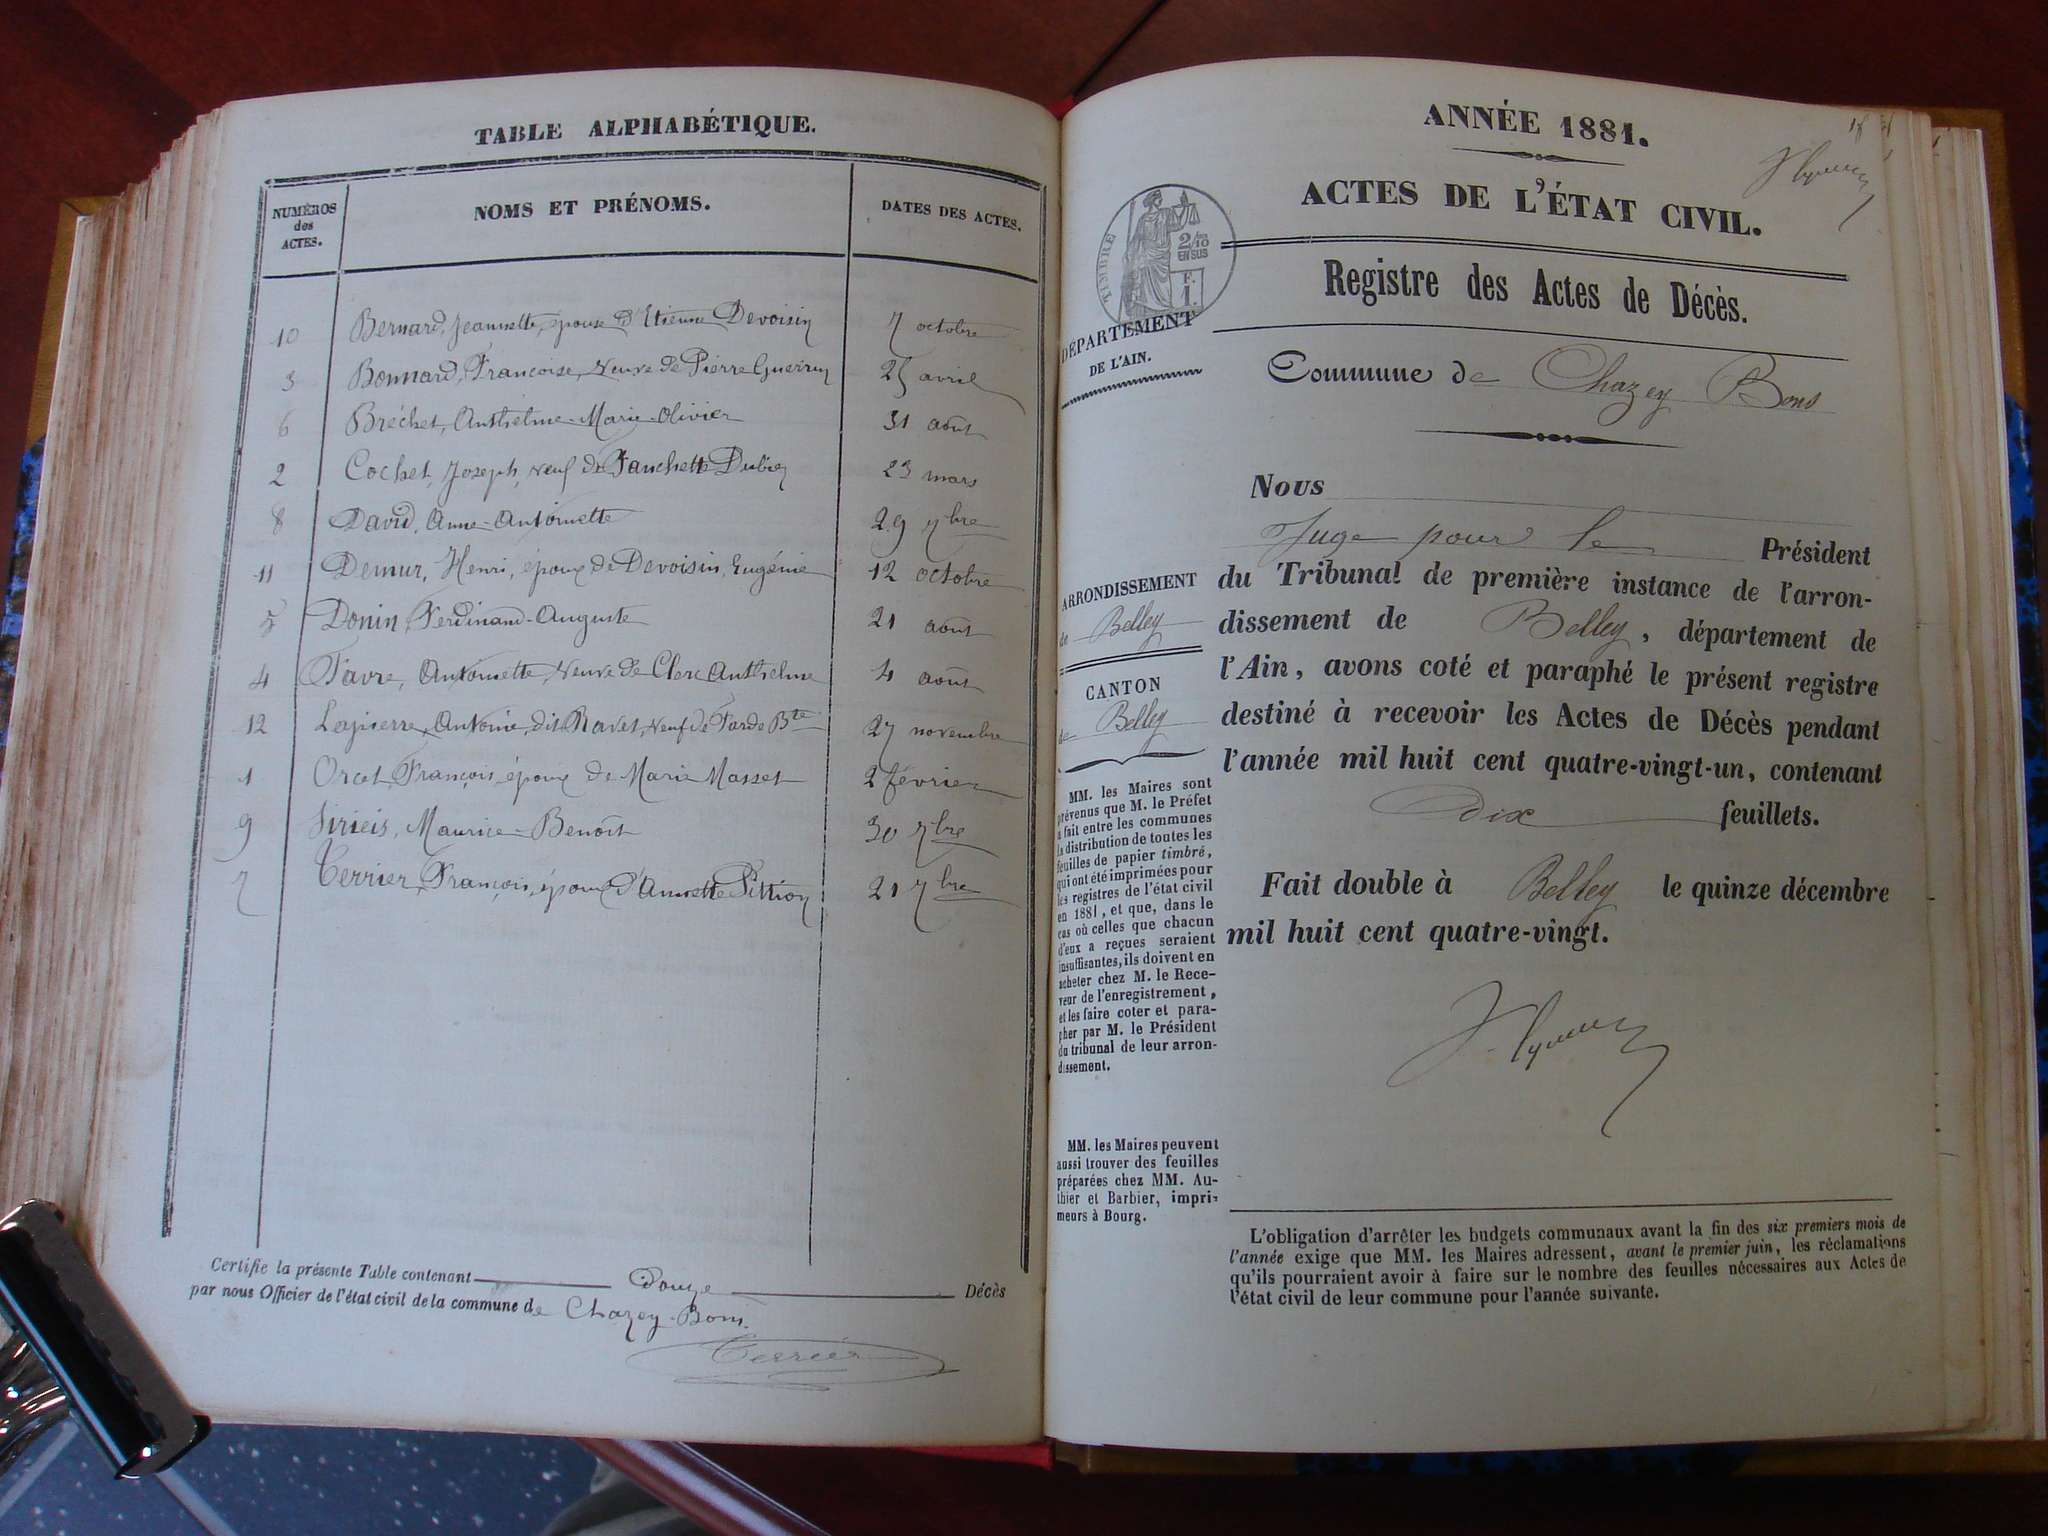 TABLE ALPHABÉTIQUE.
NUMÉROS des ACTES.
NOMS ET PRÉNOMS.
DATES DES ACTES.
10 Bernard, Jeannette, épouse d'Etienne Devoisin 7 octobre
3 Bonnard, Françoise, veuve de Pierre Guerrin 25 avril
6 Bréchet, Anthelme-Marie-Olivier 31 août
2 Cochet, Joseph, veuf de Fanchette Dubiez 23 mars
8 David, Anne-Antoinette 29 7bre
11 Demur, Henri, époux de Devoisin, Eugénie 12 octobre
5 Donin, Ferdinand-Auguste 21 août
4 Favre, Antoinette, veuve de Clerc Anthelme 4 août
12 Lapierre, Antoine, dit Ravet, veuf de Tarde Bte 27 novembre
1 Orcet, François, époux de Marie Masset 2 février
9 Sirieis, Maurice-Benoît 30 7bre
7 Terrier, François, époux d'Annette Pittion 21 7bre
Certifie la présente Table contenant douze Décès
par nous Officier de l'état civil de la commune de Chazey-Bons.
Terrier
ANNÉE 1881.
ACTES DE L'ÉTAT CIVIL.
TIMBRE
2/10
EN SUS
F.
1.
DÉPARTEMENT
DE L'AIN.
Registre des Actes de Décès.
Commune de Chazey Bons
Nous
Juge pour le Président
du Tribunal de première instance de l'arron-
dissement de Belley, département de
l'Ain, avons coté et paraphé le présent registre
destiné à recevoir les Actes de Décès pendant
l'année mil huit cent quatre-vingt-un, contenant
dix feuillets.
Fait double à Belley le quinze décembre
mil huit cent quatre-vingt.
ARRONDISSEMENT
de Belley
CANTON
de Belley
MM. les Maires sont
prévenus que M. le Préfet
a fait entre les communes
la distribution de toutes les
feuilles de papier timbré,
qui ont été imprimées pour
les registres de l'état civil
en 1881, et que, dans le
cas où celles que chacun
d'eux a reçues seraient
insuffisantes, ils doivent en
acheter chez M. le Rece-
veur de l'enregistrement,
et les faire coter et para-
pher par M. le Président
du tribunal de leur arron-
dissement.
MM. les Maires peuvent
aussi trouver des feuilles
préparées chez MM. Au-
thier et Barbier, impri-
meurs à Bourg.
L'obligation d'arrêter les budgets communaux avant la fin des six premiers mois de
l'année exige que MM. les Maires adressent, avant le premier juin, les réclamations
qu'ils pourraient avoir à faire sur le nombre des feuilles nécessaires aux Actes de
l'état civil de leur commune pour l'année suivante.